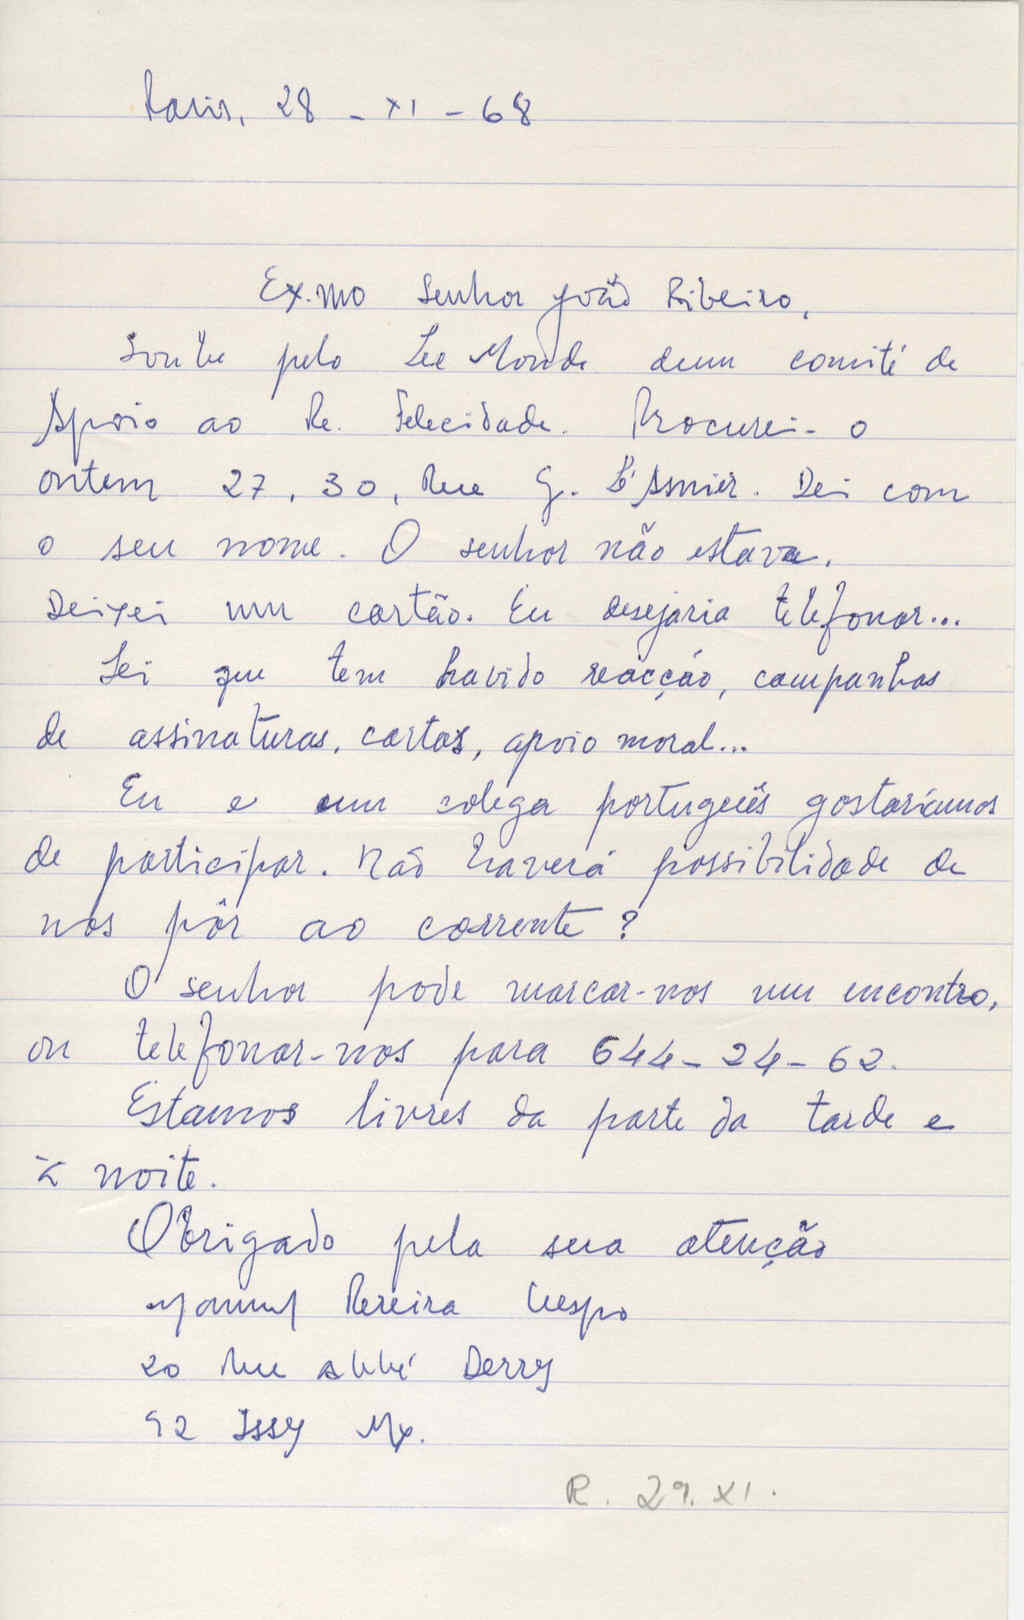 Paris, 28 - XI - 68
Ex.mo Senhor João Ribeiro,
Soube pelo Le Monde dum comité de
Apoio ao Pe. Felicidade. Procurei-o
ontem 27, 30, Rue G. l'Asnier. Dei com
o seu nome. O senhor não estava.
Deixei um cartão. Eu desejaria telefonar...
Sei que tem havido reacção, campanhas
de assinaturas, cartas, apoio moral...
Eu e um colega português gostaríamos
de participar. Não haverá possibilidade de
nos pôr ao corrente?
O senhor pode marcar-nos um encontro,
ou telefonar-nos para 644-24-62.
Estamos livres da parte da tarde e
à noite.
Obrigado pela sua atenção
Manuel Pereira Crespo
20 Rue Abbé Derry
92 Issy Mx.
R. 29.XI.